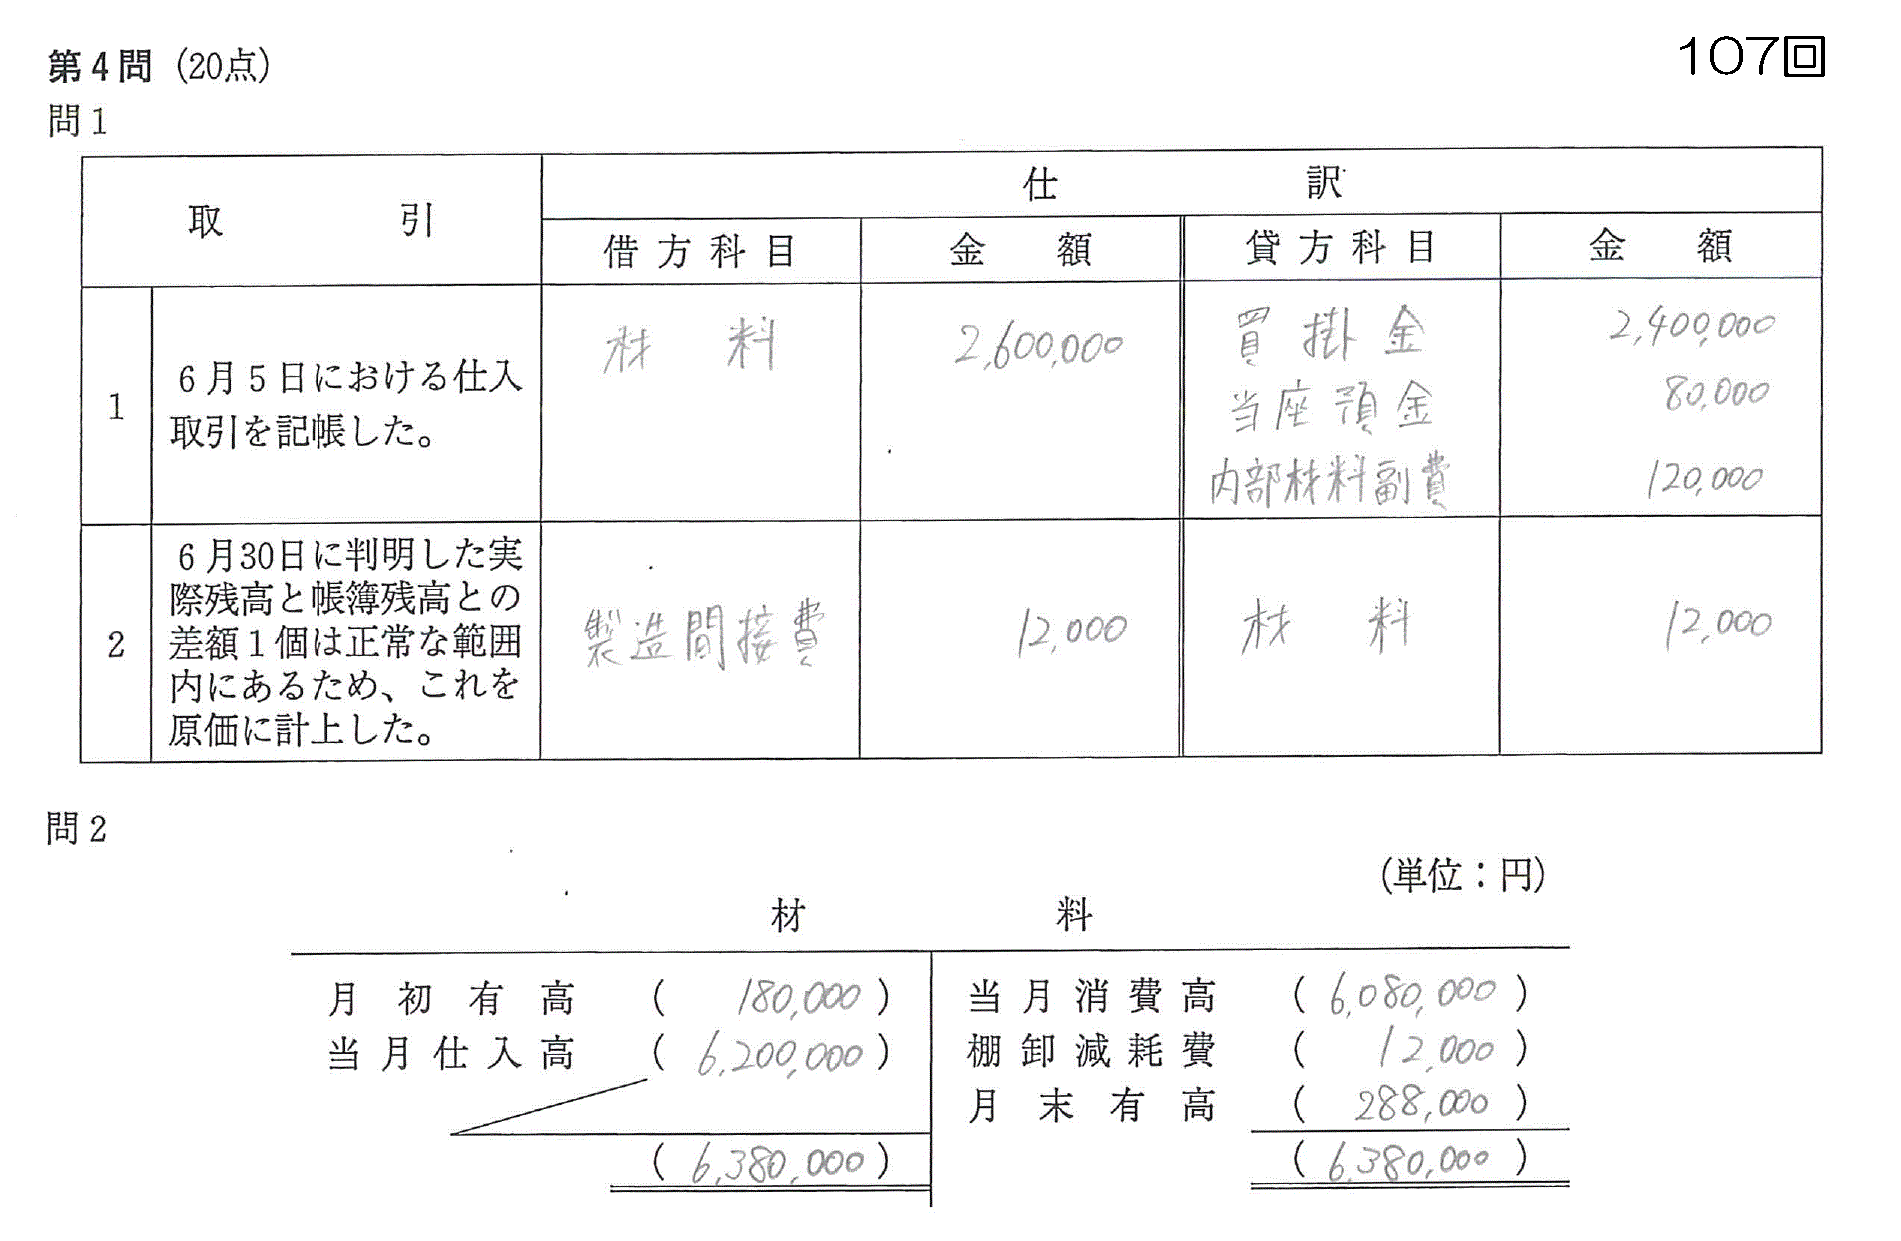 107回
第4問 (20点)
問1
取引 仕訳
借方科目 金額 貸方科目 金額
1 6月5日における仕入取引を記帳した。
材料 2,600,000 買掛金 2,400,000
当座預金 80,000
内部材料副費 120,000
2 6月30日に判明した実
際残高と帳簿残高との
差額1個は正常な範囲
内にあるため、これを
原価に計上した。
製造間接費 12,000 材料 12,000
問2
(単位:円)
材料
月初有高 ( 180,000 ) 当月消費高 ( 6,080,000 )
当月仕入高 ( 6,200,000 ) 棚卸減耗費 ( 12,000 )
月末有高 ( 288,000 )
( 6,380,000 ) ( 6,380,000 )